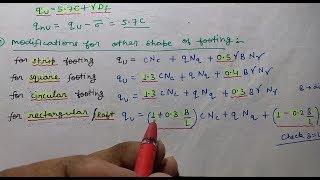 qu = 5.7C + γDf
qnu = qu - σ̄ = 5.7C
modifications for other shape of footing :-
for strip footing qu = CNc + qNq + 0.5γBNγ
for square footing qu = 1.3 CNc + qNq + 0.4γBNγ
for circular footing qu = 1.3 CNc + qNq + 0.3γBNγ
for rectangular / raft qu = (1+0.3 B/L) CNc + qNq + (1-0.2 B/L)